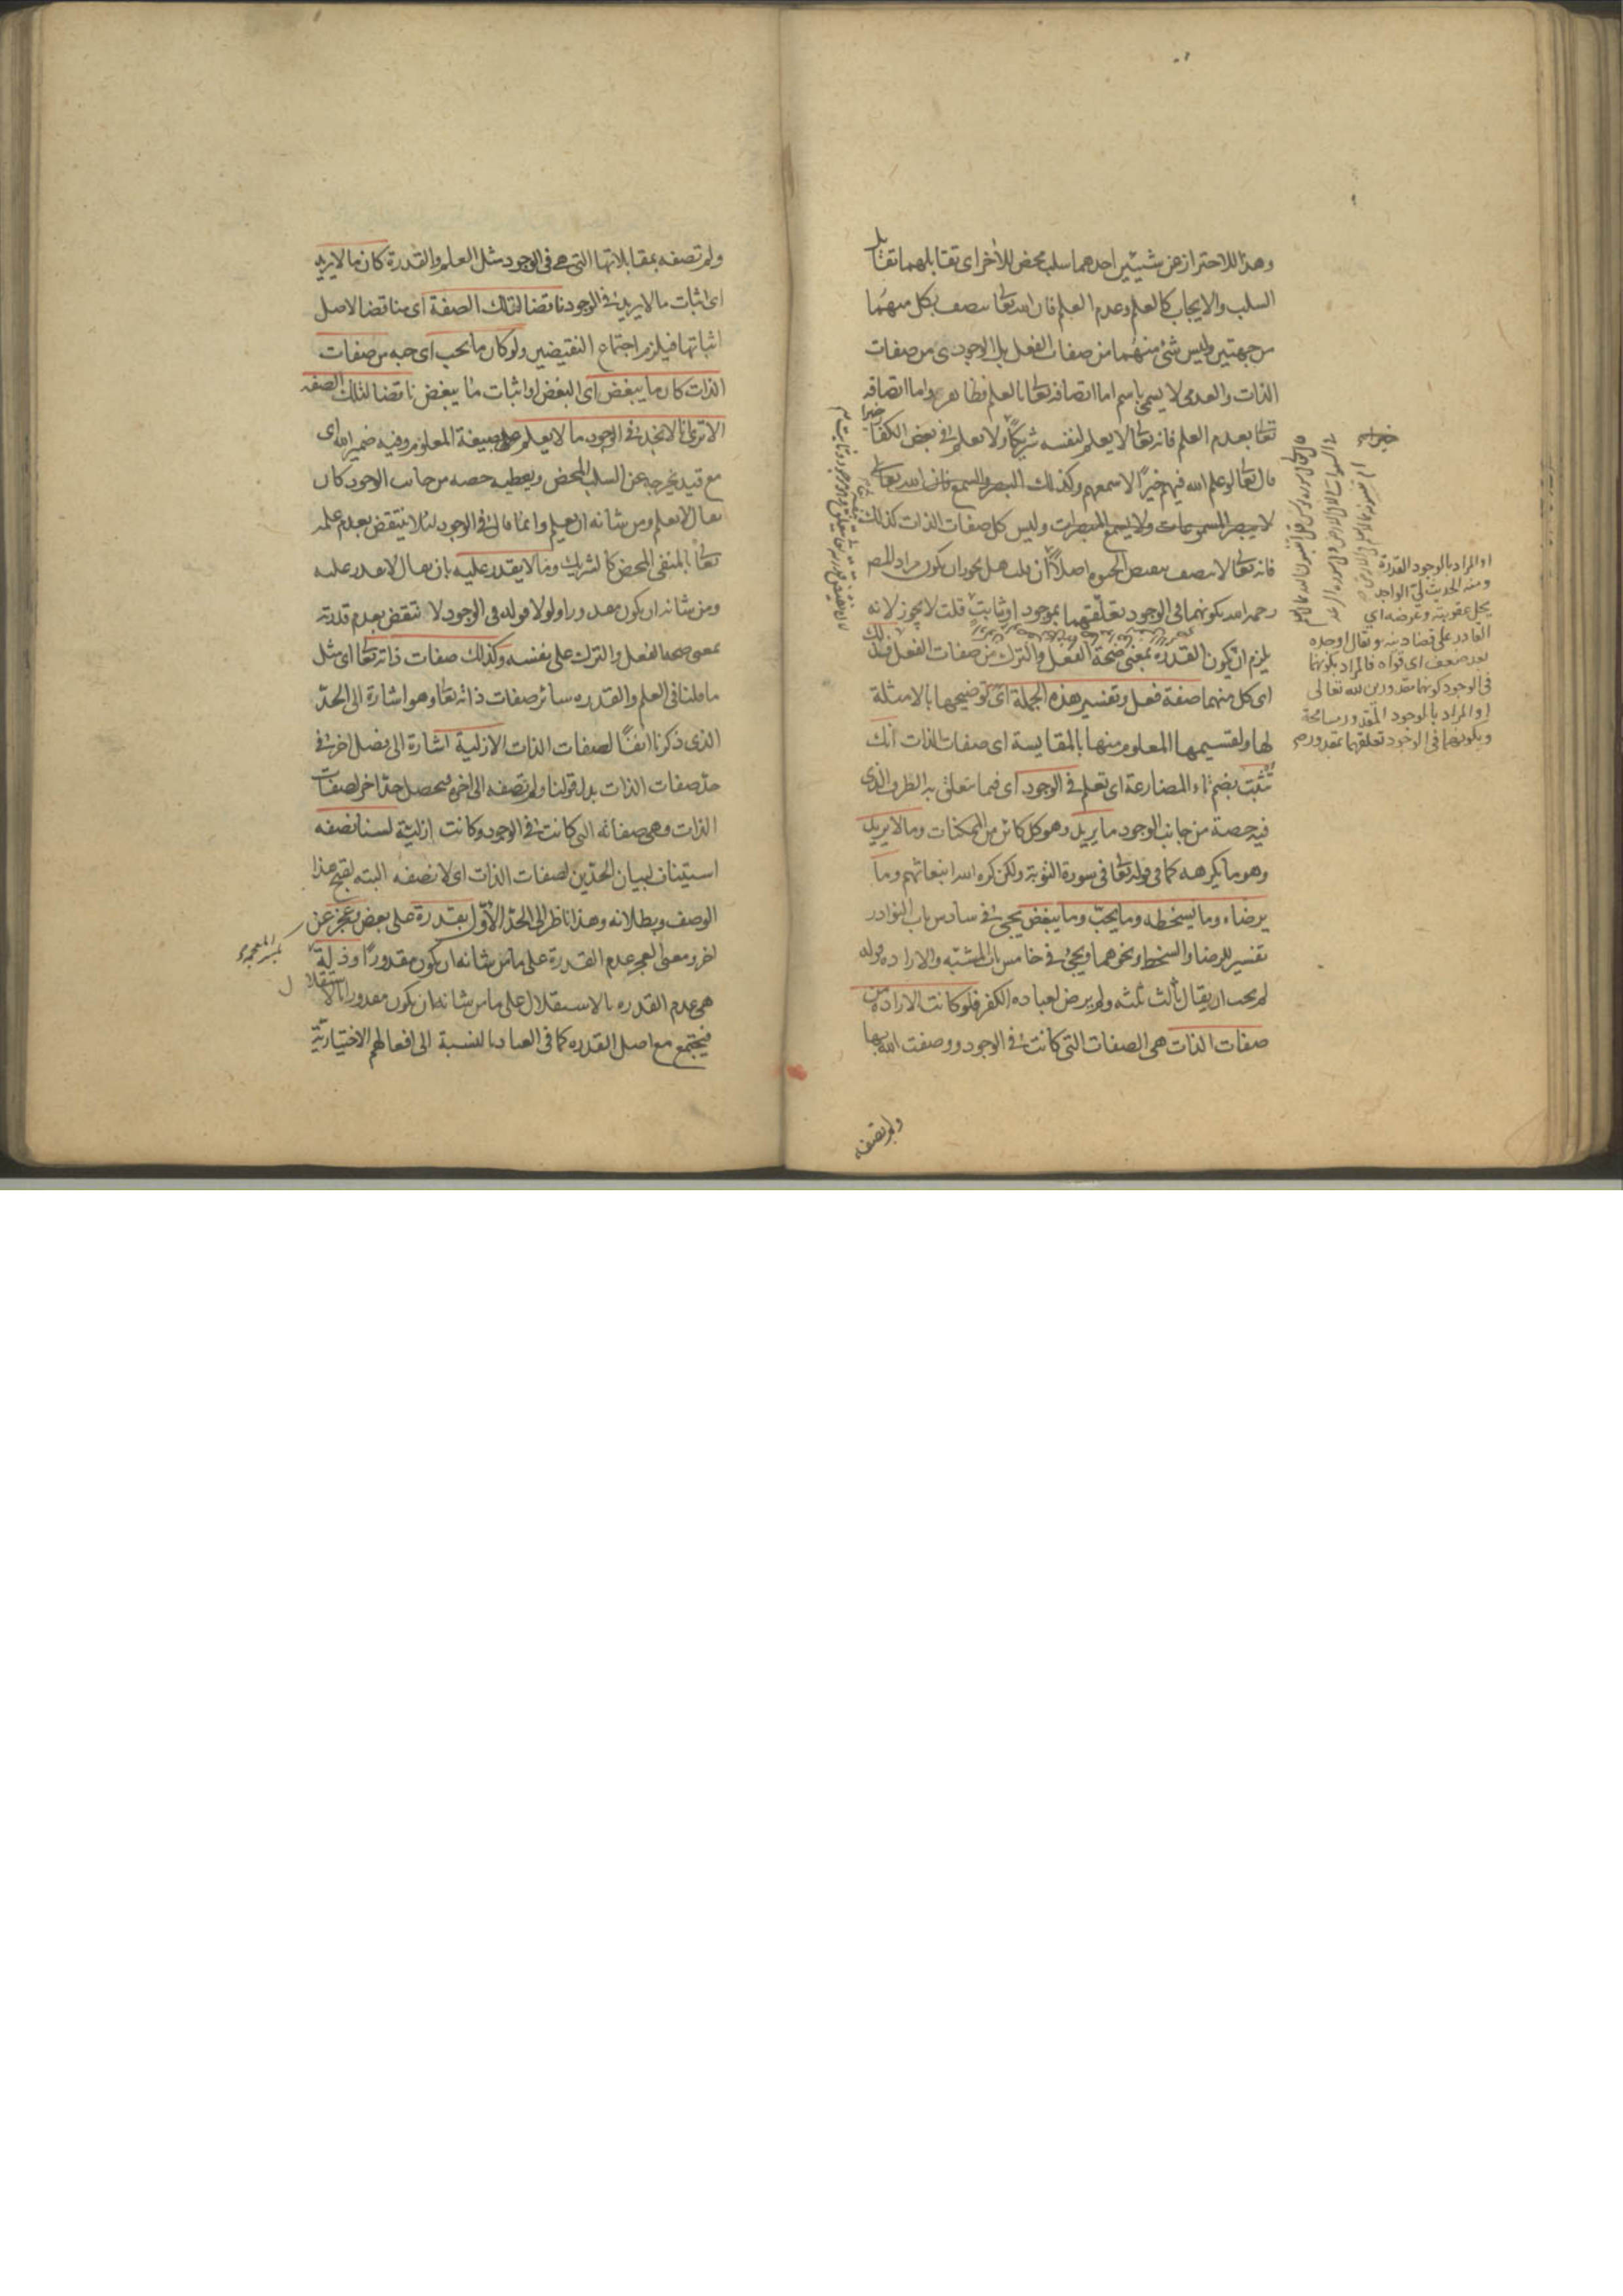 وهذا للاحتراز عن شيئين احدهما سلب محض للآخر اى تقابلهما تقابل
السلب والايجاب كالعلم وعدم العلم فان الله تعا يتصف بكل منهما
من جهتين وليس شئ منهما من صفات الفعل بل الوجودى من صفات
الذات والعدمى لا يسمى باسم اما اتصافه تعا بالعلم فظاهر واما اتصافه
تعا بعدم العلم فانه تعا لا يعلم لنفسه شريكا ولا يعلم فى بعض الكفار خيرا
قال تعا لو علم الله فيهم خيرًا لاسمعهم وكذلك البصر والسمع فان الله تعالى
لا يبصر المسموعات ولا يسمع المبصرات وليس كل صفات الذات كذلك
فانه تعا لا يتصف بنقيض الحيوة اصلاً ان قلت هل يجوز ان يكون مراد المص
رحمه الله بكونهما فى الوجود تعلّقهما بموجود او ثابت قلت لا يجوز لانه
يلزم ان يكون القدرة بمعنى صحة الفعل والترك من صفات الفعل فذلك
اى كل منهما صفة فعل وتفسير هذه الجملة اى توضيحها بالامثلة
لها ولقسيمها المعلوم منها بالمقايسة اى صفات الذات انك
تُثبت بضم تاء المضارعة اى تعلم فى الوجود اى فيما يتعلق به الظرف الذى
فيه حصة من جانب الوجود ما يريد وهو كل كائن من الممكنات وما لا يريد
وهو ما يكرهه كما فى قوله تعا فى سورة التوبة ولكن كره الله انبعاثهم وما
يرضاه وما يسخطه وما يحبّ وما يبغض يجئ فى سادس باب النوادر
تفسير للرضا والسخط ونحوهما ويجئ فى خامس باب المشيّه والاراده قوله
لم يحب ان يقال ثالث ثلثه ولم يرض لعباده الكفر فلو كانت الارادة من
صفات الذات هى الصفات التى كانت فى الوجود ووصفت الله بها
ولم تصفه
او المراد بالوجود القدرة
ومنه الحديث لىّ الواجد
يحل عقوبته وعرضه اى
القادر على قضاء دينه ويقال اوجده
بعد ضعف اى قواه فالمراد بكونهما
فى الوجود كونهما مقدورين لله تعالى
او المراد بالوجود المقدور مسامحة
وبكونهما فى الوجود تعلقهما بمقدور
ولم تصفه بمقابلاتها التى هى فى الوجود مثل العلم والقدرة كان ما لا يريد
اى اثبات ما لا يريد فى الوجود ناقضا لتلك الصفة اى مناقضا لاصل
اثباتها فيلزم اجتماع النقيضين ولو كان ما يحب اى حبه من صفات
الذات كان ما يبغض اى البغض او اثبات ما يبغض ناقضا لتلك الصفه
الا ترى انا لا نجد فى الوجود ما لا يعلم على صيغة المعلوم وفيه ضمير الله اى
مع قيد يخرجه عن السلب المحض ويعطيه حصه من جانب الوجود كان
يقال لا يعلم ومن شانه ان يعلم وانما قال فى الوجود لئلا ينتقض بعدم علمه
تعا بالمنفى المحض كالشريك وما لا يقدر عليه بان يقال لا يقدر عليه
ومن شانه ان يكون مقدورا ولولا قوله فى الوجود لا نتقض بعدم قدرته
بمعنى صحة الفعل والترك على نفسه وكذلك صفات ذاته تعا اى مثل
ما قلنا فى العلم والقدره سائر صفات ذاته تعا وهو اشارة الى الحدّ
الذى ذكرنا انفًا لصفات الذات الازلية اشارة الى فصل اخر فى
حدّ صفات الذات بدل قولنا ولم تصفه الى اخره فيحصل حدّ اخر لصفات
الذات وهى صفاته التى كانت فى الوجود وكانت ازلية لسنا نصفه
استيناف لبيان الحدّين لصفات الذات اى لا نصفه البته لقبح هذا
الوصف وبطلانه وهذا ناظر الى الحدّ الاوّل بقدرة على بعض وعجز عن
اخر ومعنى العجز عدم القدرة على ما من شانه ان يكون مقدورًا وذلة
هى عدم القدره بالاستقلال على ما من شانه ان يكون مقدورا بالاستقلال
فيجتمع مع اصل القدره كما فى العباد بالنسبة الى افعالهم الاختيارية